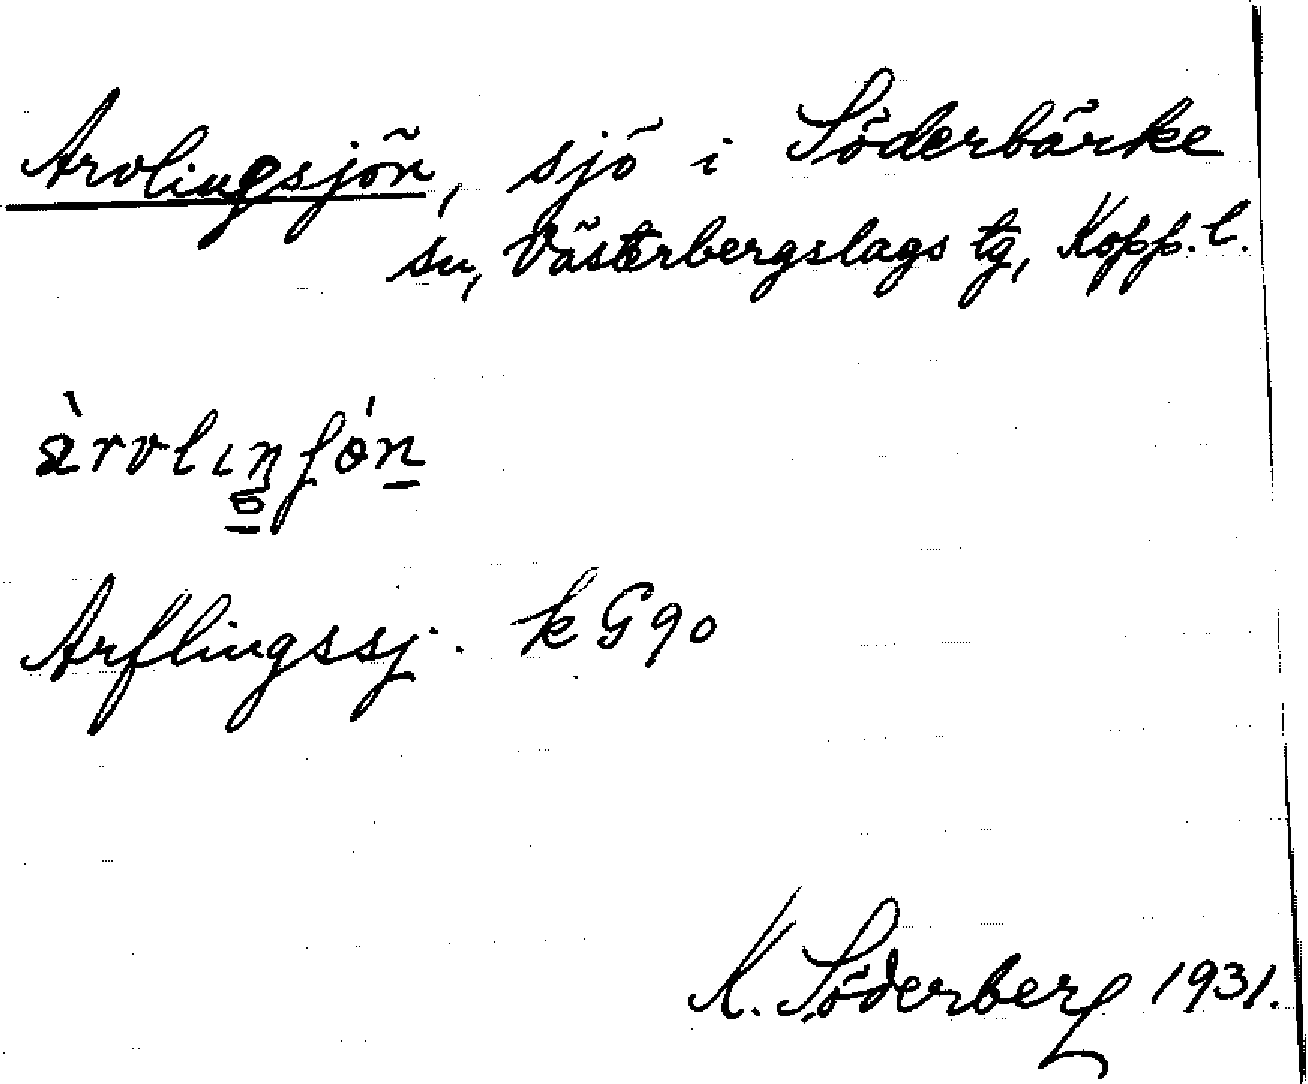 Arvlingsjön, sjö i Söderbärke
sn, Västerbergslags tg, Kopp. l.
àrvlıŋʃón
Arflingssj. k G 90
K. Söderberg 1931.